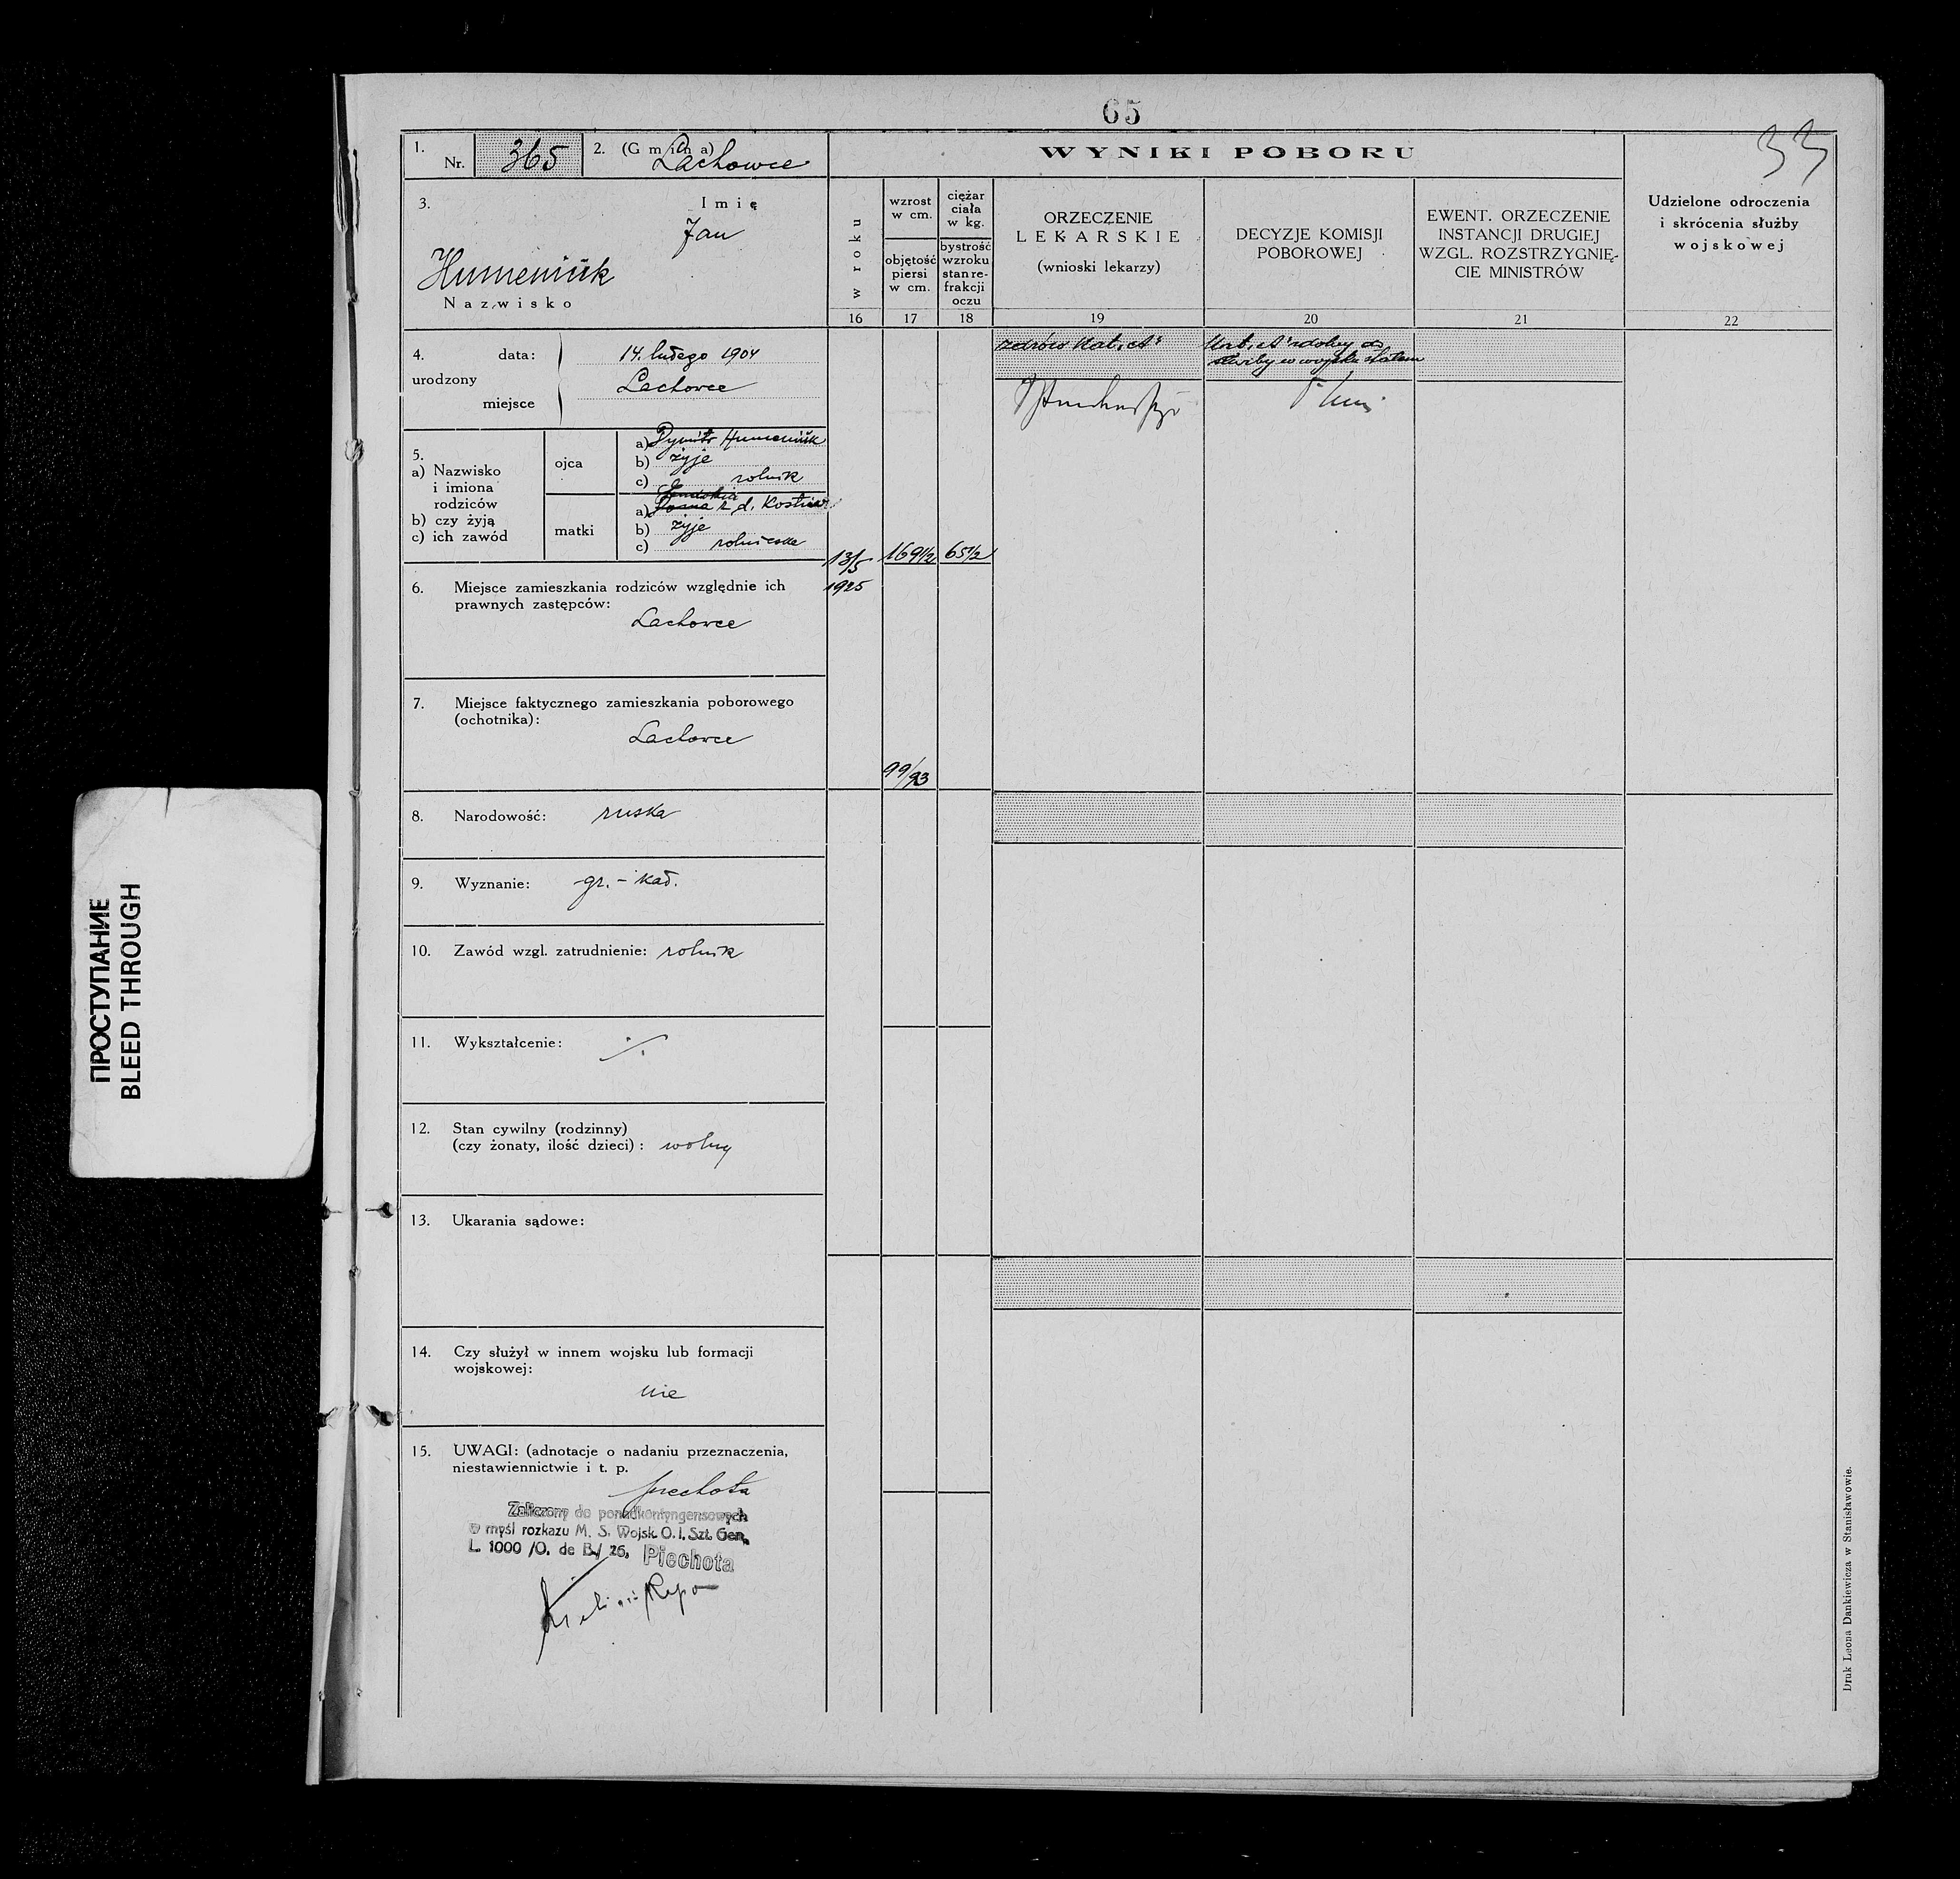 65
33
1. Nr. 365 2. (Gmina) Lachowce
WYNIKI POBORU
3. Imię
Jan
Humeniuk
Nazwisko
w roku
wzrost
w cm.
objętość
piersi
w cm.
ciężar
ciała
w kg.
bystrość
wzroku
stan re-
frakcji
oczu
ORZECZENIE
LEKARSKIE
(wnioski lekarzy)
DECYZJE KOMISJI
POBOROWEJ
EWENT. ORZECZENIE
INSTANCJI DRUGIEJ
WZGL. ROZSTRZYGNIĘ-
CIE MINISTRÓW
Udzielone odroczenia
i skrócenia służby
wojskowej
16 17 18 19 20 21 22
4. data: 14. lutego 1904
urodzony
miejsce Lachowce
zdrów Kat. "A"
Kat. "A" zdolny do
służby w wojsku stałem
5.
a) Nazwisko
i imiona
rodziców
b) czy żyją
c) ich zawód
ojca
a) Dymitr Humeniuk
b) żyje
c) rolnik
matki
a) z d.
b) żyje
c) rolniczka
13/5
1925
169 1/2
65 1/2
99/93
6. Miejsce zamieszkania rodziców względnie ich
prawnych zastępców:
Lachowce
7. Miejsce faktycznego zamieszkania poborowego
(ochotnika):
Lachowce
8. Narodowość: ruska
9. Wyznanie: gr.-kat.
10. Zawód wzgl. zatrudnienie: rolnik
11. Wykształcenie: ·/.
12. Stan cywilny (rodzinny)
(czy żonaty, ilość dzieci): wolny
13. Ukarania sądowe:
14. Czy służył w innem wojsku lub formacji
wojskowej:
nie
15. UWAGI: (adnotacje o nadaniu przeznaczenia,
niestawiennictwie i t. p.
piechota
Zaliczony do ponadkontyngensowych
w myśl rozkazu M. S. Wojsk. O. I. Szt. Gen.
L. 1000 /O. de B./ 26. Piechota
Druk Leona Dankiewicza w Stanisławowie.
ПРОСТУПАНИЕ
BLEED THROUGH